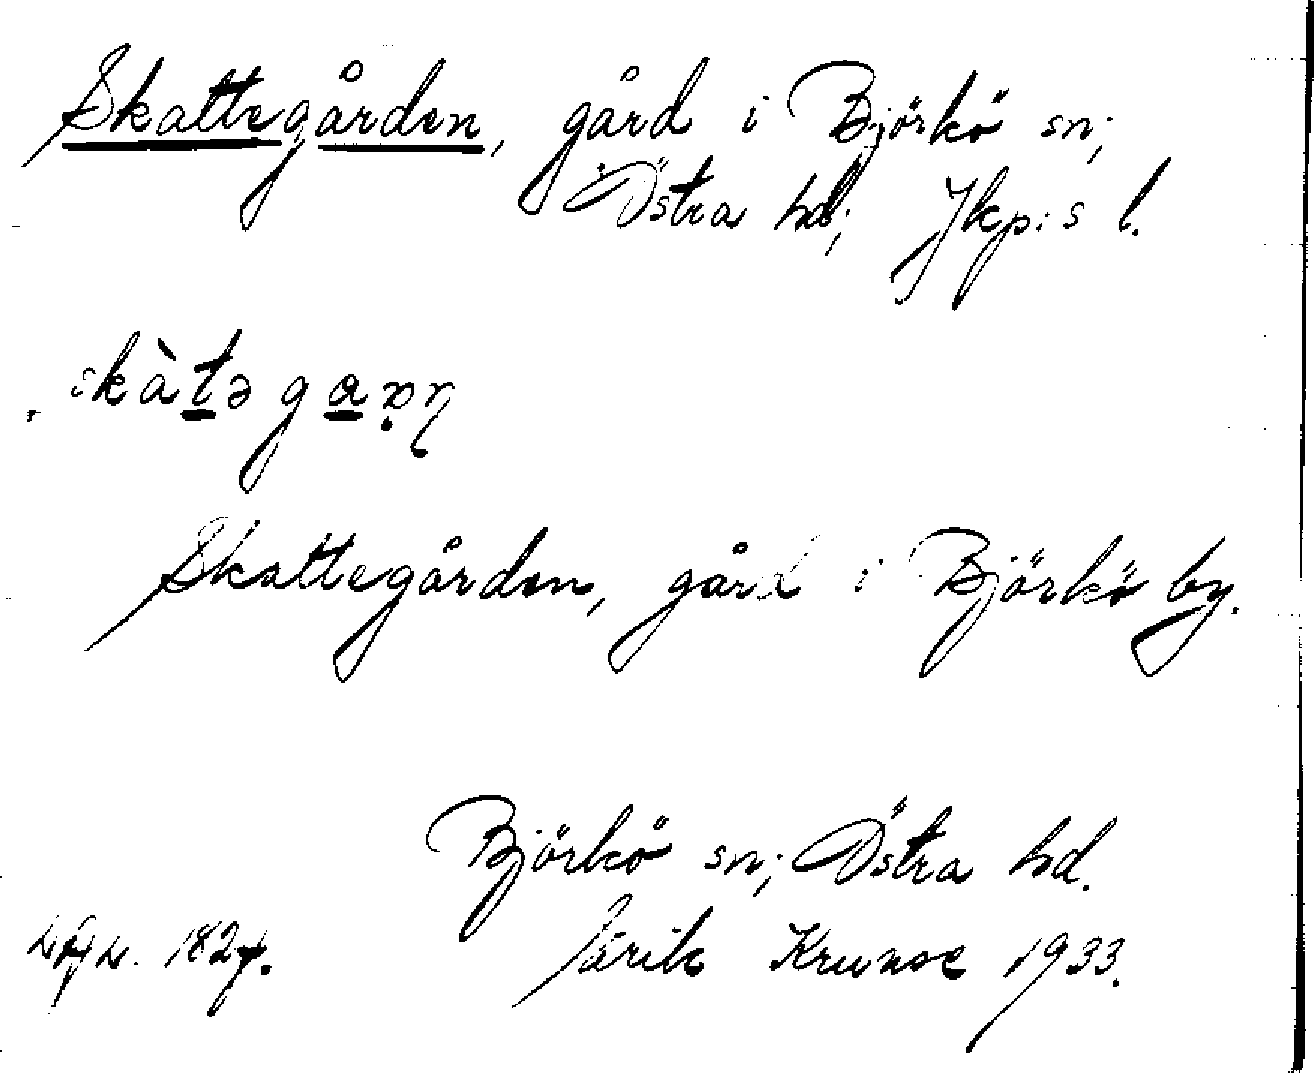 Skattegården, gård i Björkö sn;
Östra hd; Jkp:s l.
skàtəgaṛṇ
Skattegården, gård i Björkö by.
Björkö sn; Östra hd.
1824. Järik Krunse 1933.